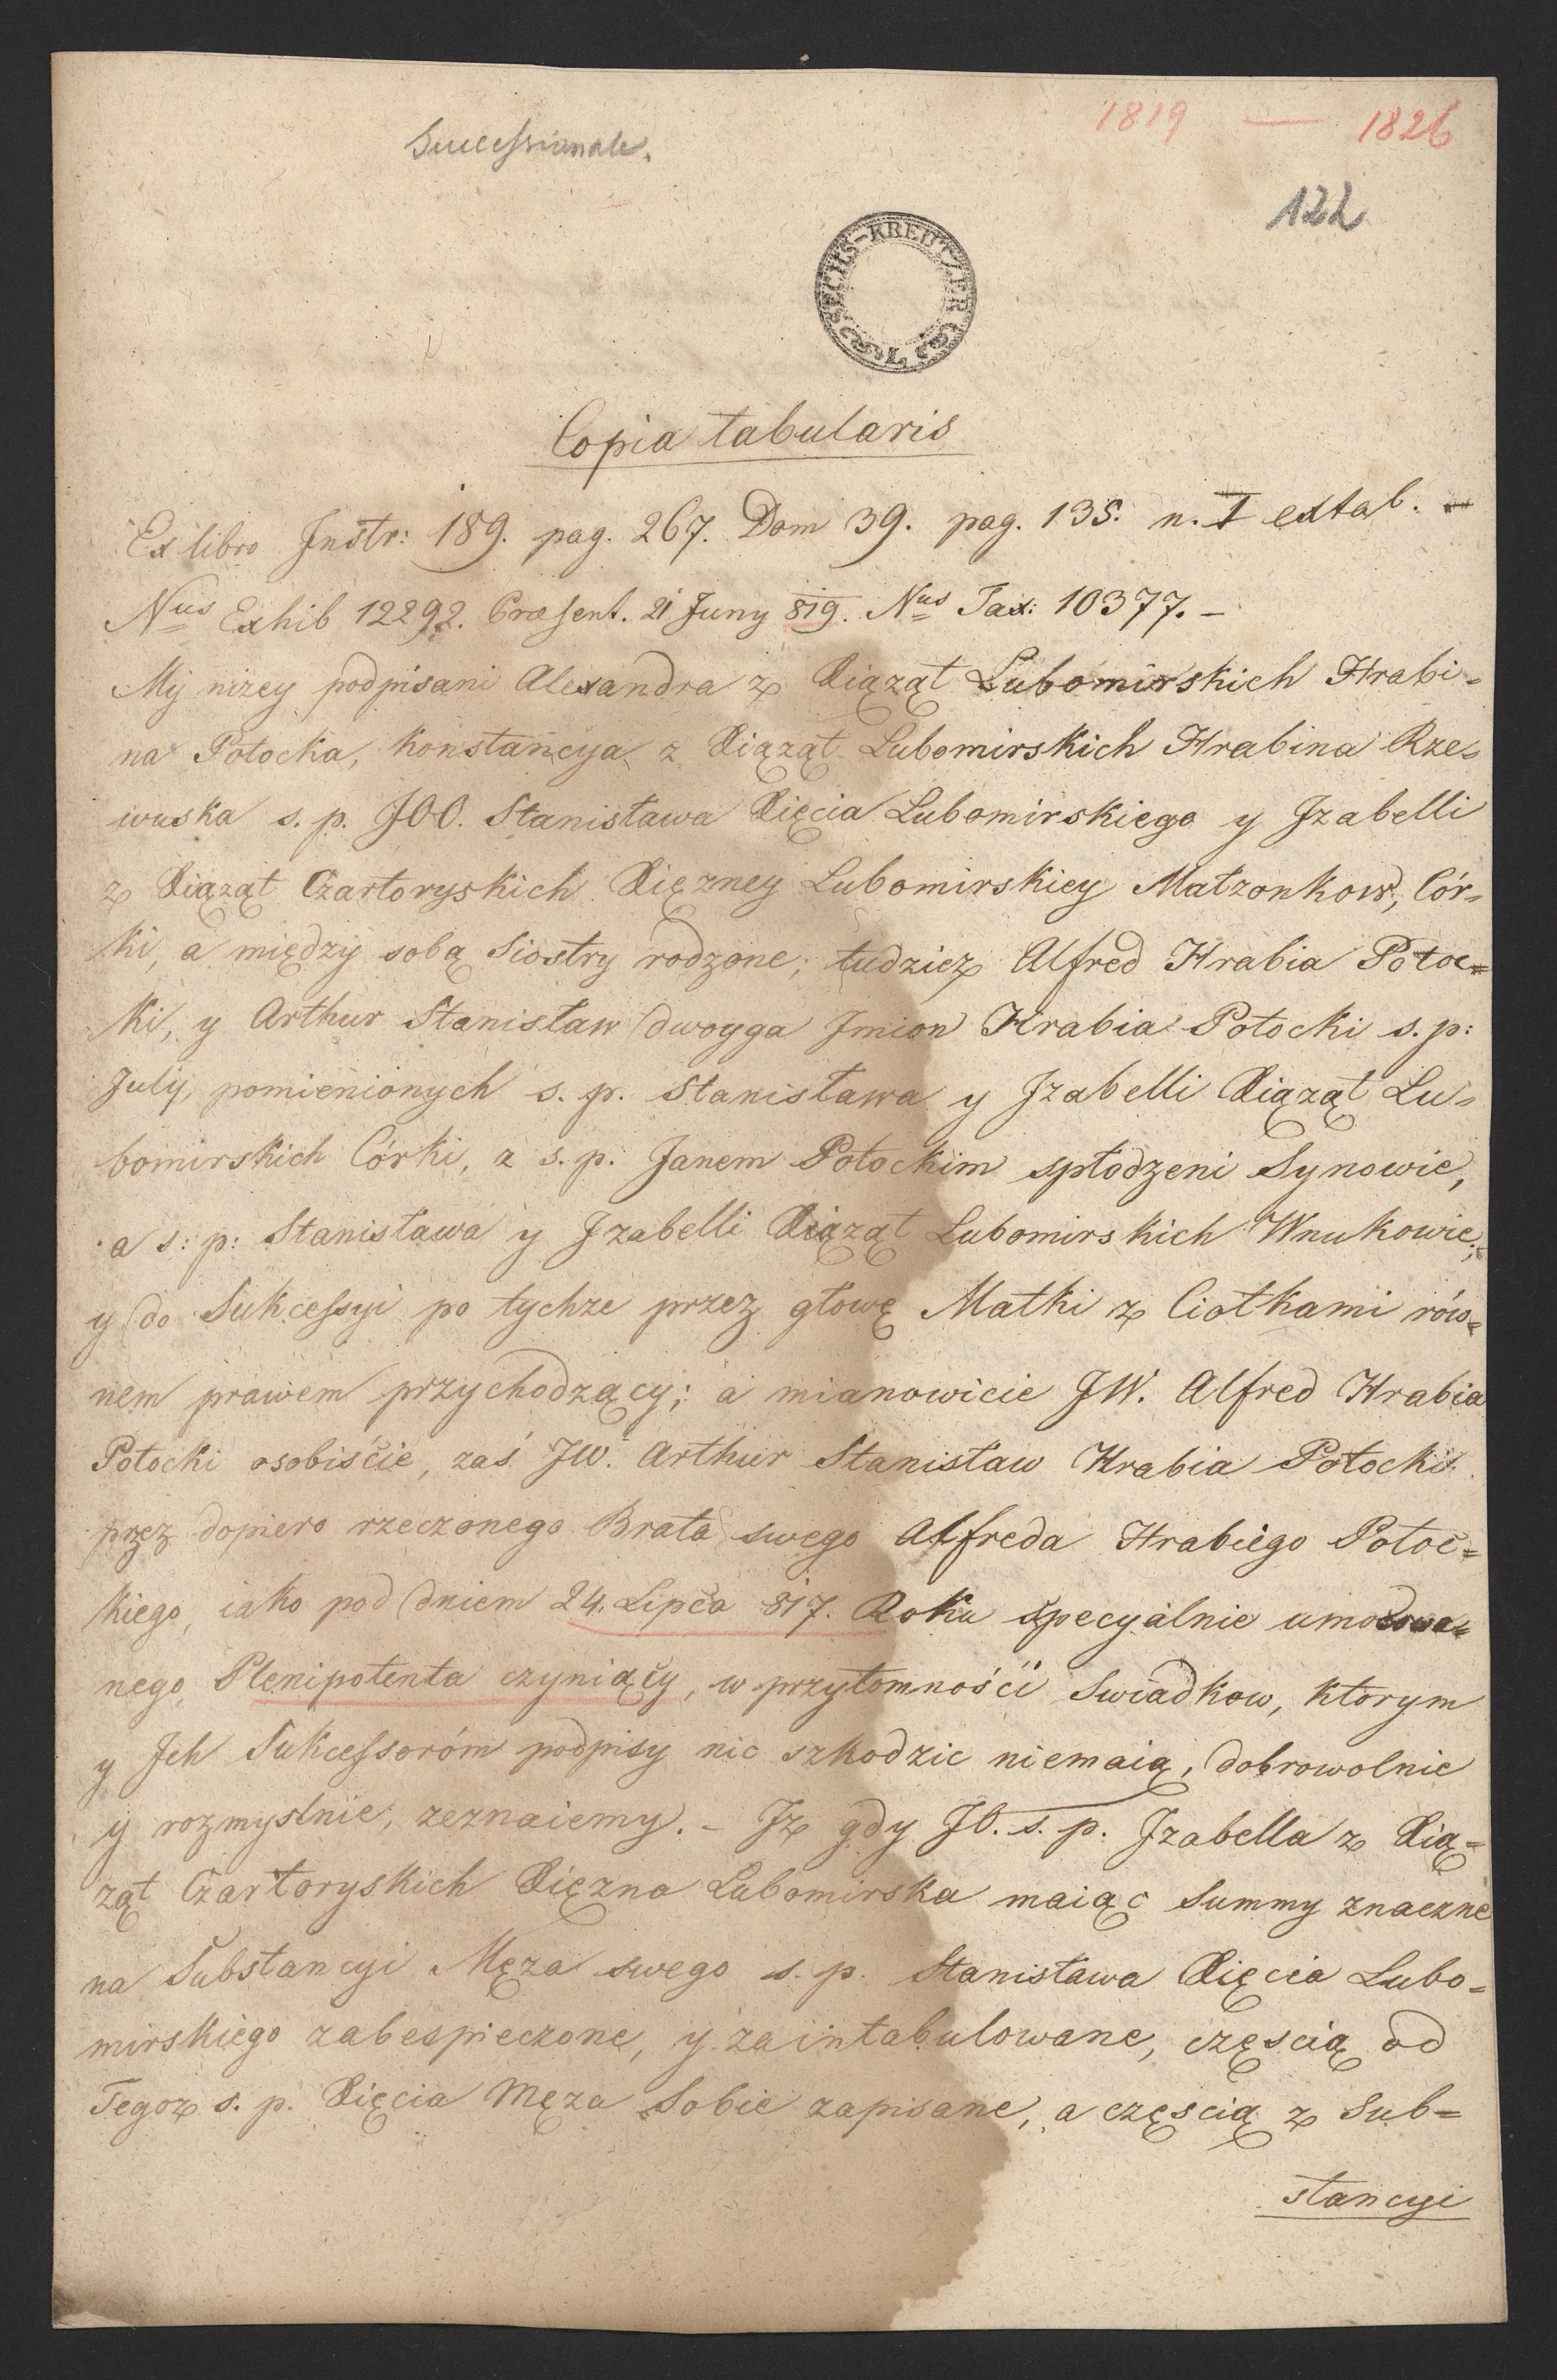 1819 — 1826
Successionale.
122
SECHS-KREUTZER
Copia tabularis
Ex libro Instr: 189. pag. 267. Dom 39. pag. 135. n. I extab. -
Nus Exhib 12292. Præsent. 21 Juny 819. Nus Tax: 10377. -
My niżey podpisani Alexandra z Xiążąt Lubomirskich Hrabi-
na Potocka, Konstancya z Xiążąt Lubomirskich Hrabina Rze-
wuska s. p. JOO. Stanisława Xięcia Lubomirskiego y Izabelli
z Xiążąt Czartoryskich Xiężney Lubomirskiey Małżonkow, Cór-
ki, a między sobą Siostry rodzone; tudzież Alfred Hrabia Potoc=
ki, y Arthur Stanisław dwoyga Imion Hrabia Potocki s. p:
Julij, pomienionych s. p. Stanisława y Izabelli Xiążąt Lu-
bomirskich Córki, z s. p. Janem Potockim spłodzeni Synowie,
a s: p: Stanisława y Izabelli Xiążąt Lubomirskich Wnukowie;
y do Sukcessyi po tychże przez głowę Matki z Ciotkami rów=
nem prawem przychodzący; a mianowicie JW. Alfred Hrabia
Potocki osobiście, zaś JW. Arthur Stanisław Hrabia Potocki
przez dopiero rzeczonego Brata swego Alfreda Hrabiego Potoc=
kiego, iako pod dniem 24. Lipca 817. Roku specyalnie umocowa=
nego Plenipotenta czyniący, w przytomności Swiadkow, ktorym
y Ich Sukcessoróm podpisy nic szkodzic niemaią, dobrowolnie
y rozmyslnie, zeznaiemy. - Iż gdy JO. s. p. Izabella z Xią=
żąt Czartoryskich Xiężna Lubomirska maiąc Summy znaczne
na Substancyi Męża swego s. p. Stanisława Xięcia Lubo-
mirskiego zabespieczone, y zaintabulowane, częscią od
Tegoż s. p. Xięcia Męża Sobie zapisane, a częscią z Sub=
stancyi